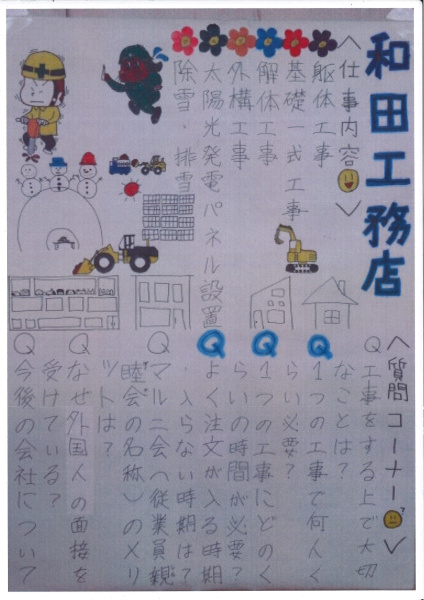 和田工務店
〈仕事内容〉
躯体工事
基礎一式工事
解体工事
外構工事
太陽光発電パネル設置
除雪・排雪
〈質問コーナー〉
Q工事をする上で大切
なことは?
Q1つの工事で何人く
らい必要?
Q1つの工事にどのく
らいの時間が必要?
Qよく注文が入る時期
・入らない時期は?
Qマルニ会(従業員親
睦会の名称)のメリ
ットは?
Qなぜ外国人の面接を
受けている?
Q今後の会社について